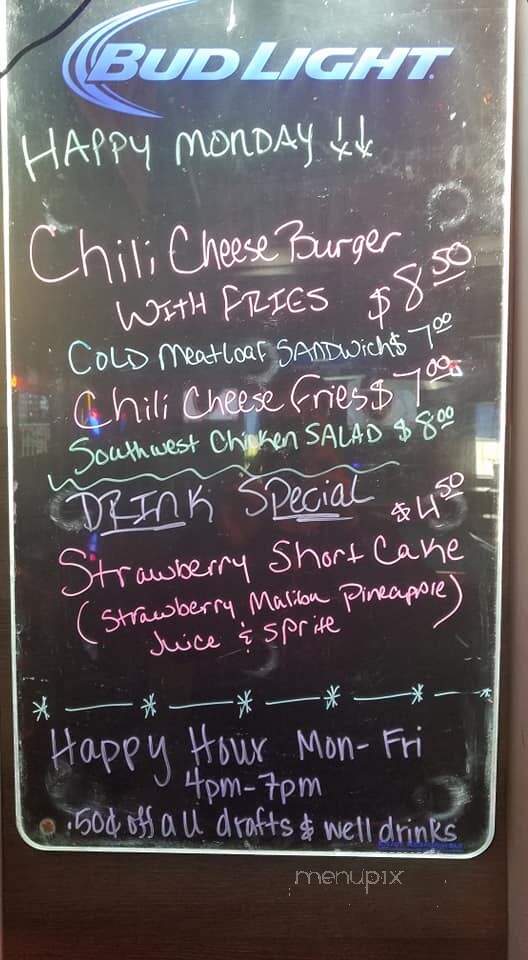 BUD LIGHT.
HAPPY MONDAY ↓↓
Chili Cheese Burger
WITH FRIES $8.50
COLD Meatloaf SANDWich $7.00
Chili Cheese Fries $7.00
Southwest Chicken SALAD $8.00
DRINK Special
$4.50
Strawberry Short Cake
(Strawberry Malibu Pineapple)
Juice & Sprite
Happy Hour Mon-Fri
4pm-7pm
.50¢ off all drafts & well drinks
menupix